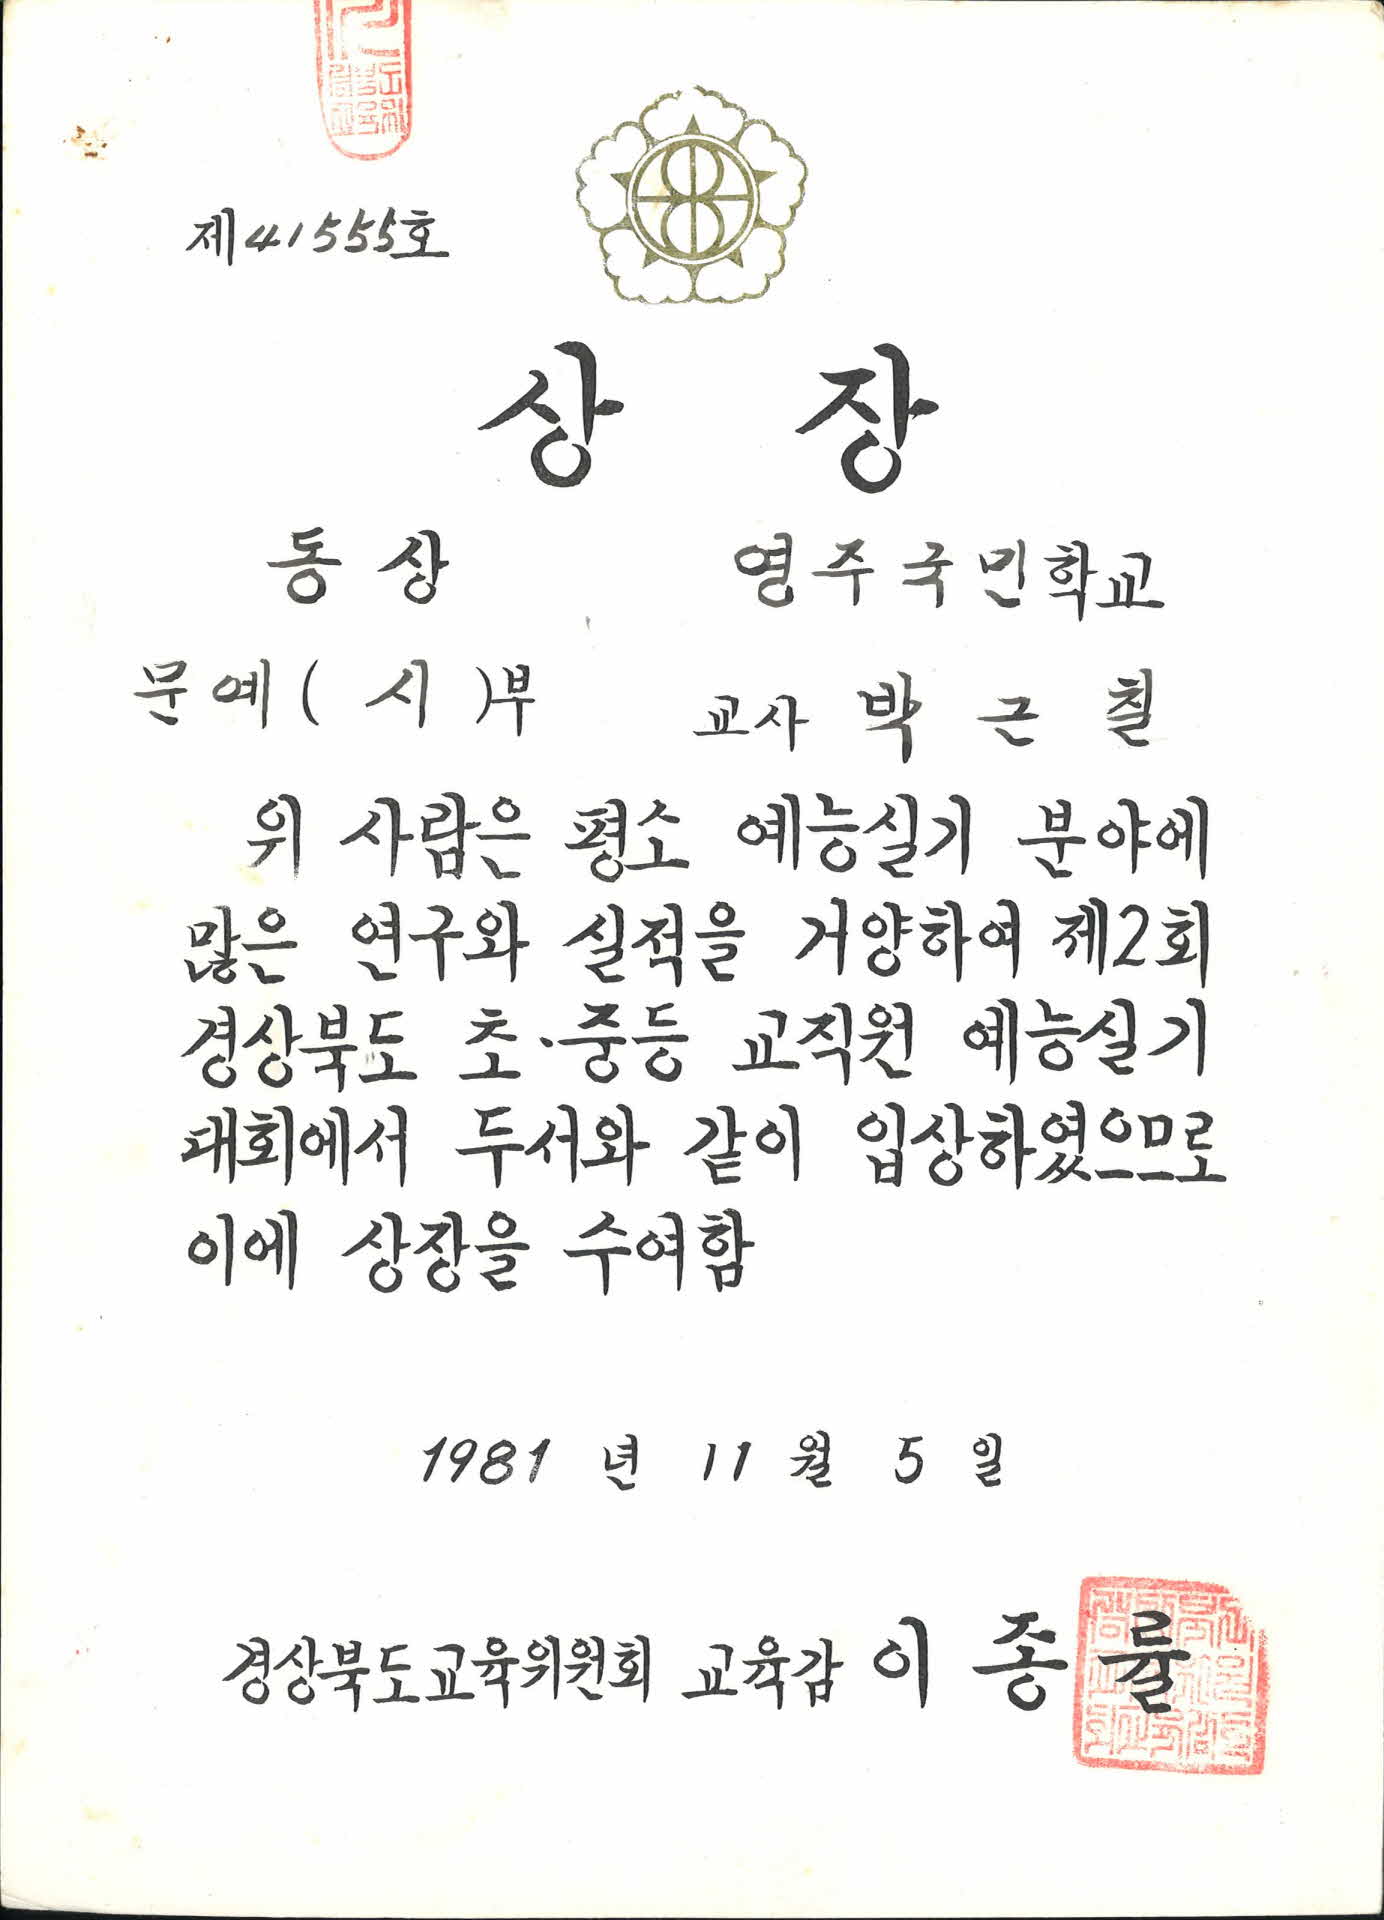 제41555호
상 장
동상
영주국민학교
문예( 시 )부
교사 박 근 칠
위 사람은 평소 예능실기 분야에
많은 연구와 실적을 거양하여 제2회
경상북도 초·중등 교직원 예능실기
대회에서 두서와 같이 입상하였으므로
이에 상장을 수여함
1981 년 11 월 5 일
경상북도교육위원회 교육감 이 종 률